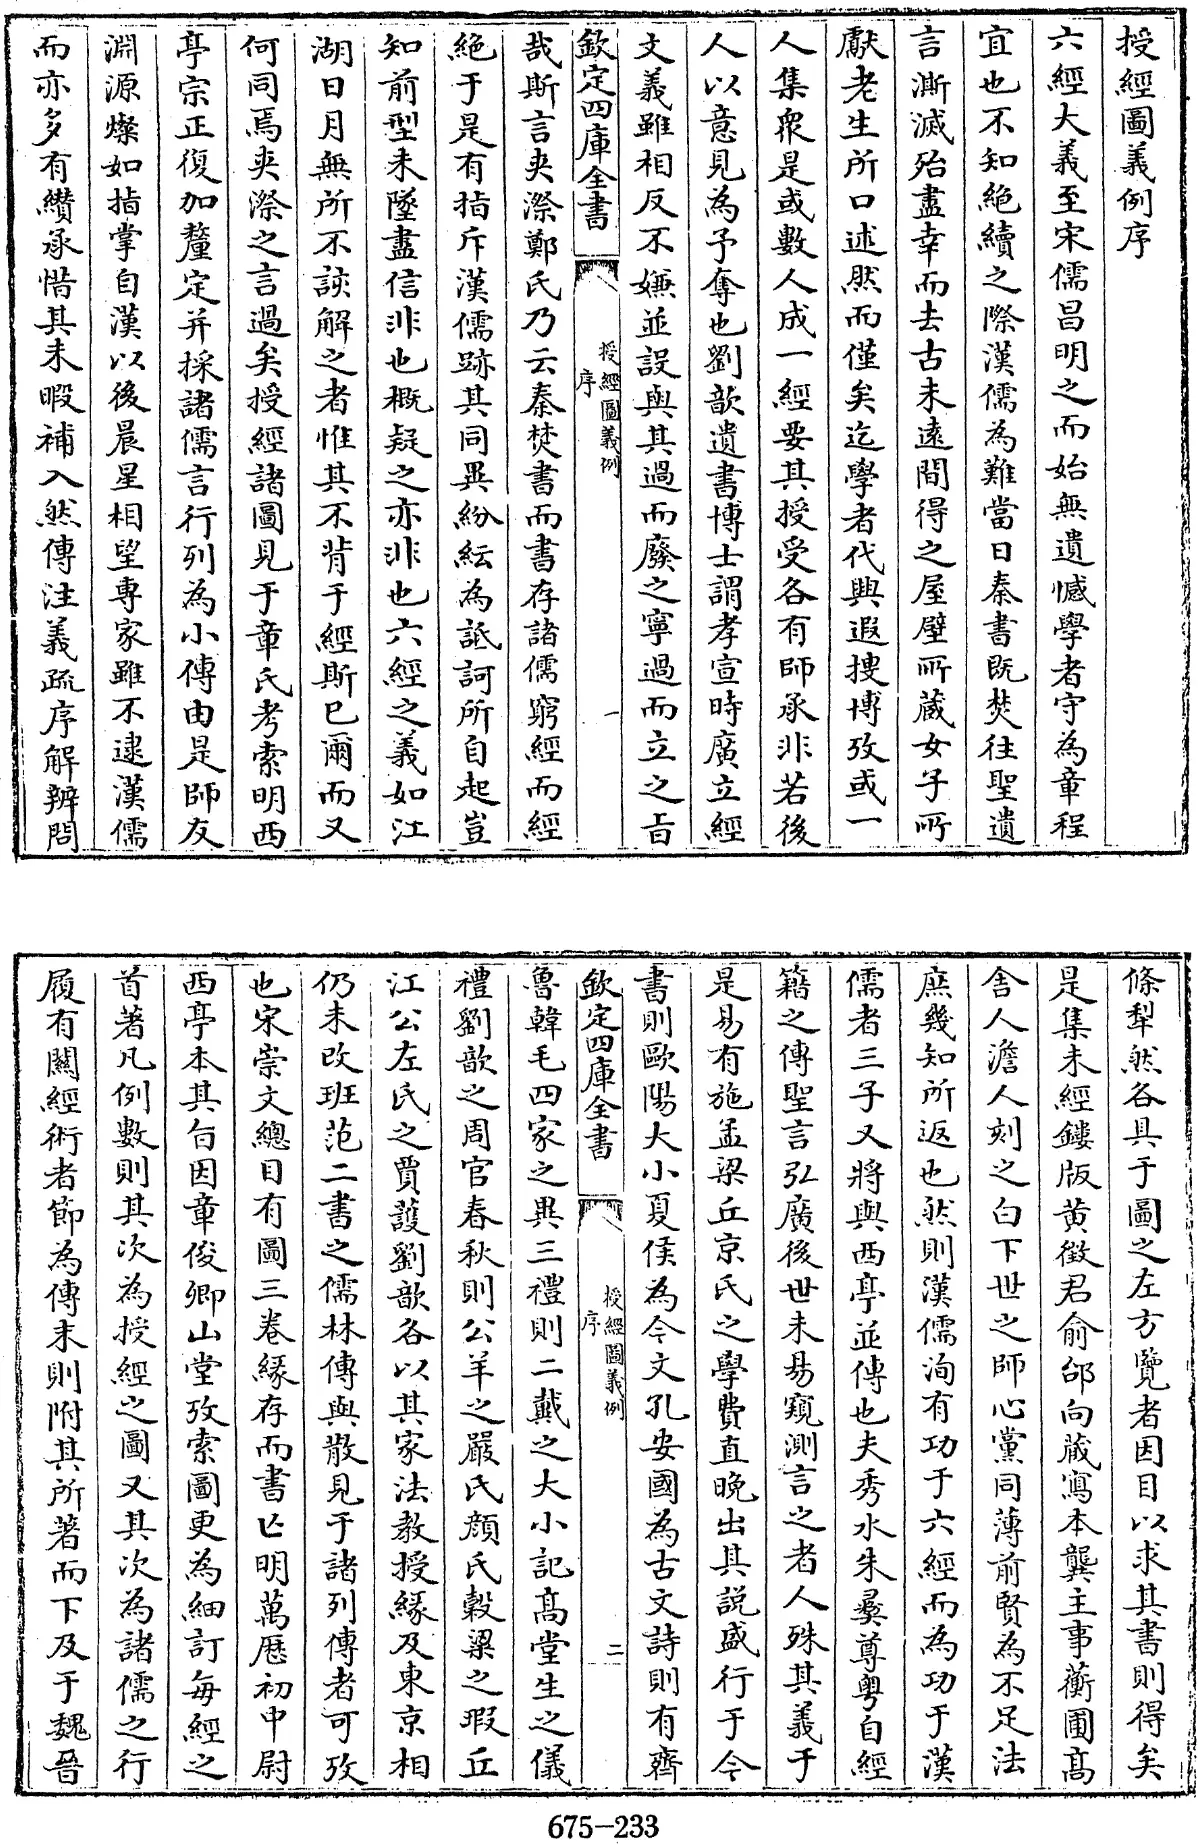 授經圖義例序
六經大義至宋儒昌明之而始無遺憾學者守為章程
宜也不知絕續之際漢儒為難當日秦書既焚往聖遺
言澌滅殆盡幸而去古未遠間得之屋壁所藏女子所
獻老生所口述然而僅矣迄學者代興遐搜博攷或一
人集衆是或數人成一經要其授受各有師承非若後
人以意見為予奪也劉歆遺書博士謂孝宣時廣立經
文義雖相反不嫌並設與其過而廢之寧過而立之旨
欽定四庫全書
授經圖義例
序
一
哉斯言夾漈鄭氏乃云秦焚書而書存諸儒窮經而經
絕于是有指斥漢儒跡其同異紛紜為詆訶所自起豈
知前型未墜盡信非也概疑之亦非也六經之義如江
湖日月無所不該解之者惟其不背于經斯已爾而又
何同焉夾漈之言過矣授經諸圖見于章氏考索明西
亭宗正復加釐定并採諸儒言行列為小傳由是師友
淵源燦如指掌自漢以後晨星相望專家雖不逮漢儒
而亦多有纘承惜其未暇補入然傳注義疏序解辨問
條犁然各具于圖之左方覽者因目以求其書則得矣
是集未經鏤版黄徵君俞邰向藏寫本龔主事蘅圃高
舍人澹人刻之白下世之師心黨同薄前賢為不足法
庶幾知所返也然則漢儒洵有功于六經而為功于漢
儒者三子又將與西亭並傳也夫秀水朱彛尊粵自經
籍之傳聖言弘廣後世未易窺測言之者人殊其義于
是易有施孟梁丘京氏之學費直晚出其説盛行于今
書則歐陽大小夏侯為今文孔安國為古文詩則有齊
欽定四庫全書
授經圖義例
序
二
魯韓毛四家之異三禮則二戴之大小記高堂生之儀
禮劉歆之周官春秋則公羊之嚴氏顔氏穀梁之瑕丘
江公左氏之賈護劉歆各以其家法教授緣及東京相
仍未改班范二書之儒林傳與散見于諸列傳者可攷
也宋崇文總目有圖三卷緣存而書亡明萬歷初中尉
西亭本其旨因章俊卿山堂攷索圖更為細訂每經之
首著凡例數則其次為授經之圖又其次為諸儒之行
履有關經術者節為傳末則附其所著而下及于魏晉
675-233